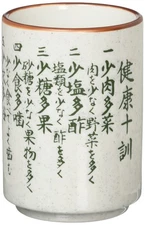 健康十訓
一 少肉多菜
肉を少なく野菜を多く
二 少塩多酢
塩類を少なく酢を多く
三 少糖多果
砂糖を少なく果物を多く
四 少食多噛